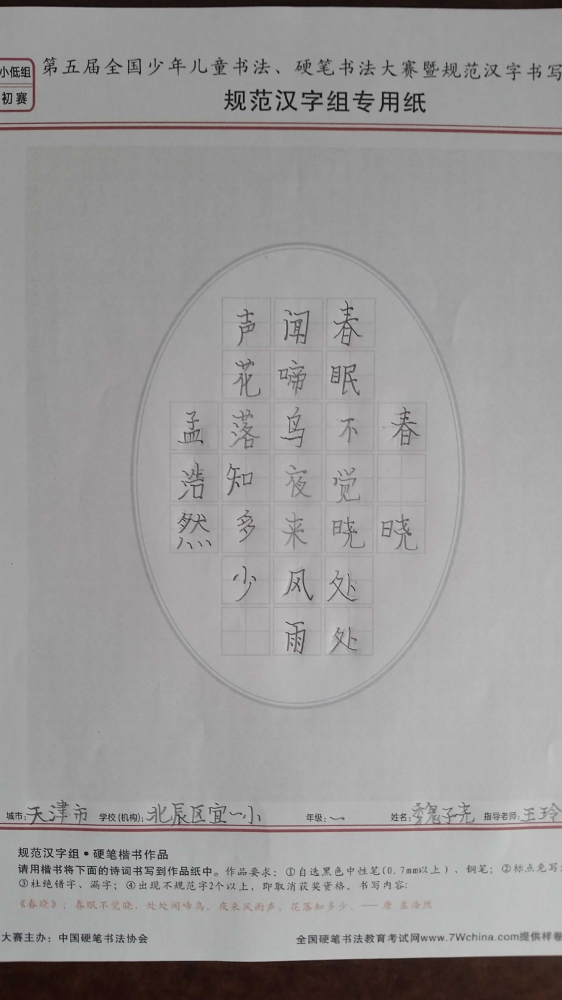 小低组
初赛
第五届全国少年儿童书法、硬笔书法大赛暨规范汉字书写
规范汉字组专用纸
春晓
春眠不觉晓处处
闻啼鸟夜来风雨
声花落知多少
孟浩然
城市:天津市 学校(机构):北辰区宜一小 年级:一 姓名:魏子尧 指导老师:王玲
规范汉字组·硬笔楷书作品
请用楷书将下面的诗词书写到作品纸中。作品要求:①自选黑色中性笔(0.7mm以上)、钢笔;②标点免写;
③杜绝错字、漏字;④出现不规范字2个以上,即取消获奖资格。书写内容:
《春晓》:春眠不觉晓,处处闻啼鸟。夜来风雨声,花落知多少。——唐 孟浩然
大赛主办:中国硬笔书法协会 全国硬笔书法教育考试网www.7Wchina.com提供样卷